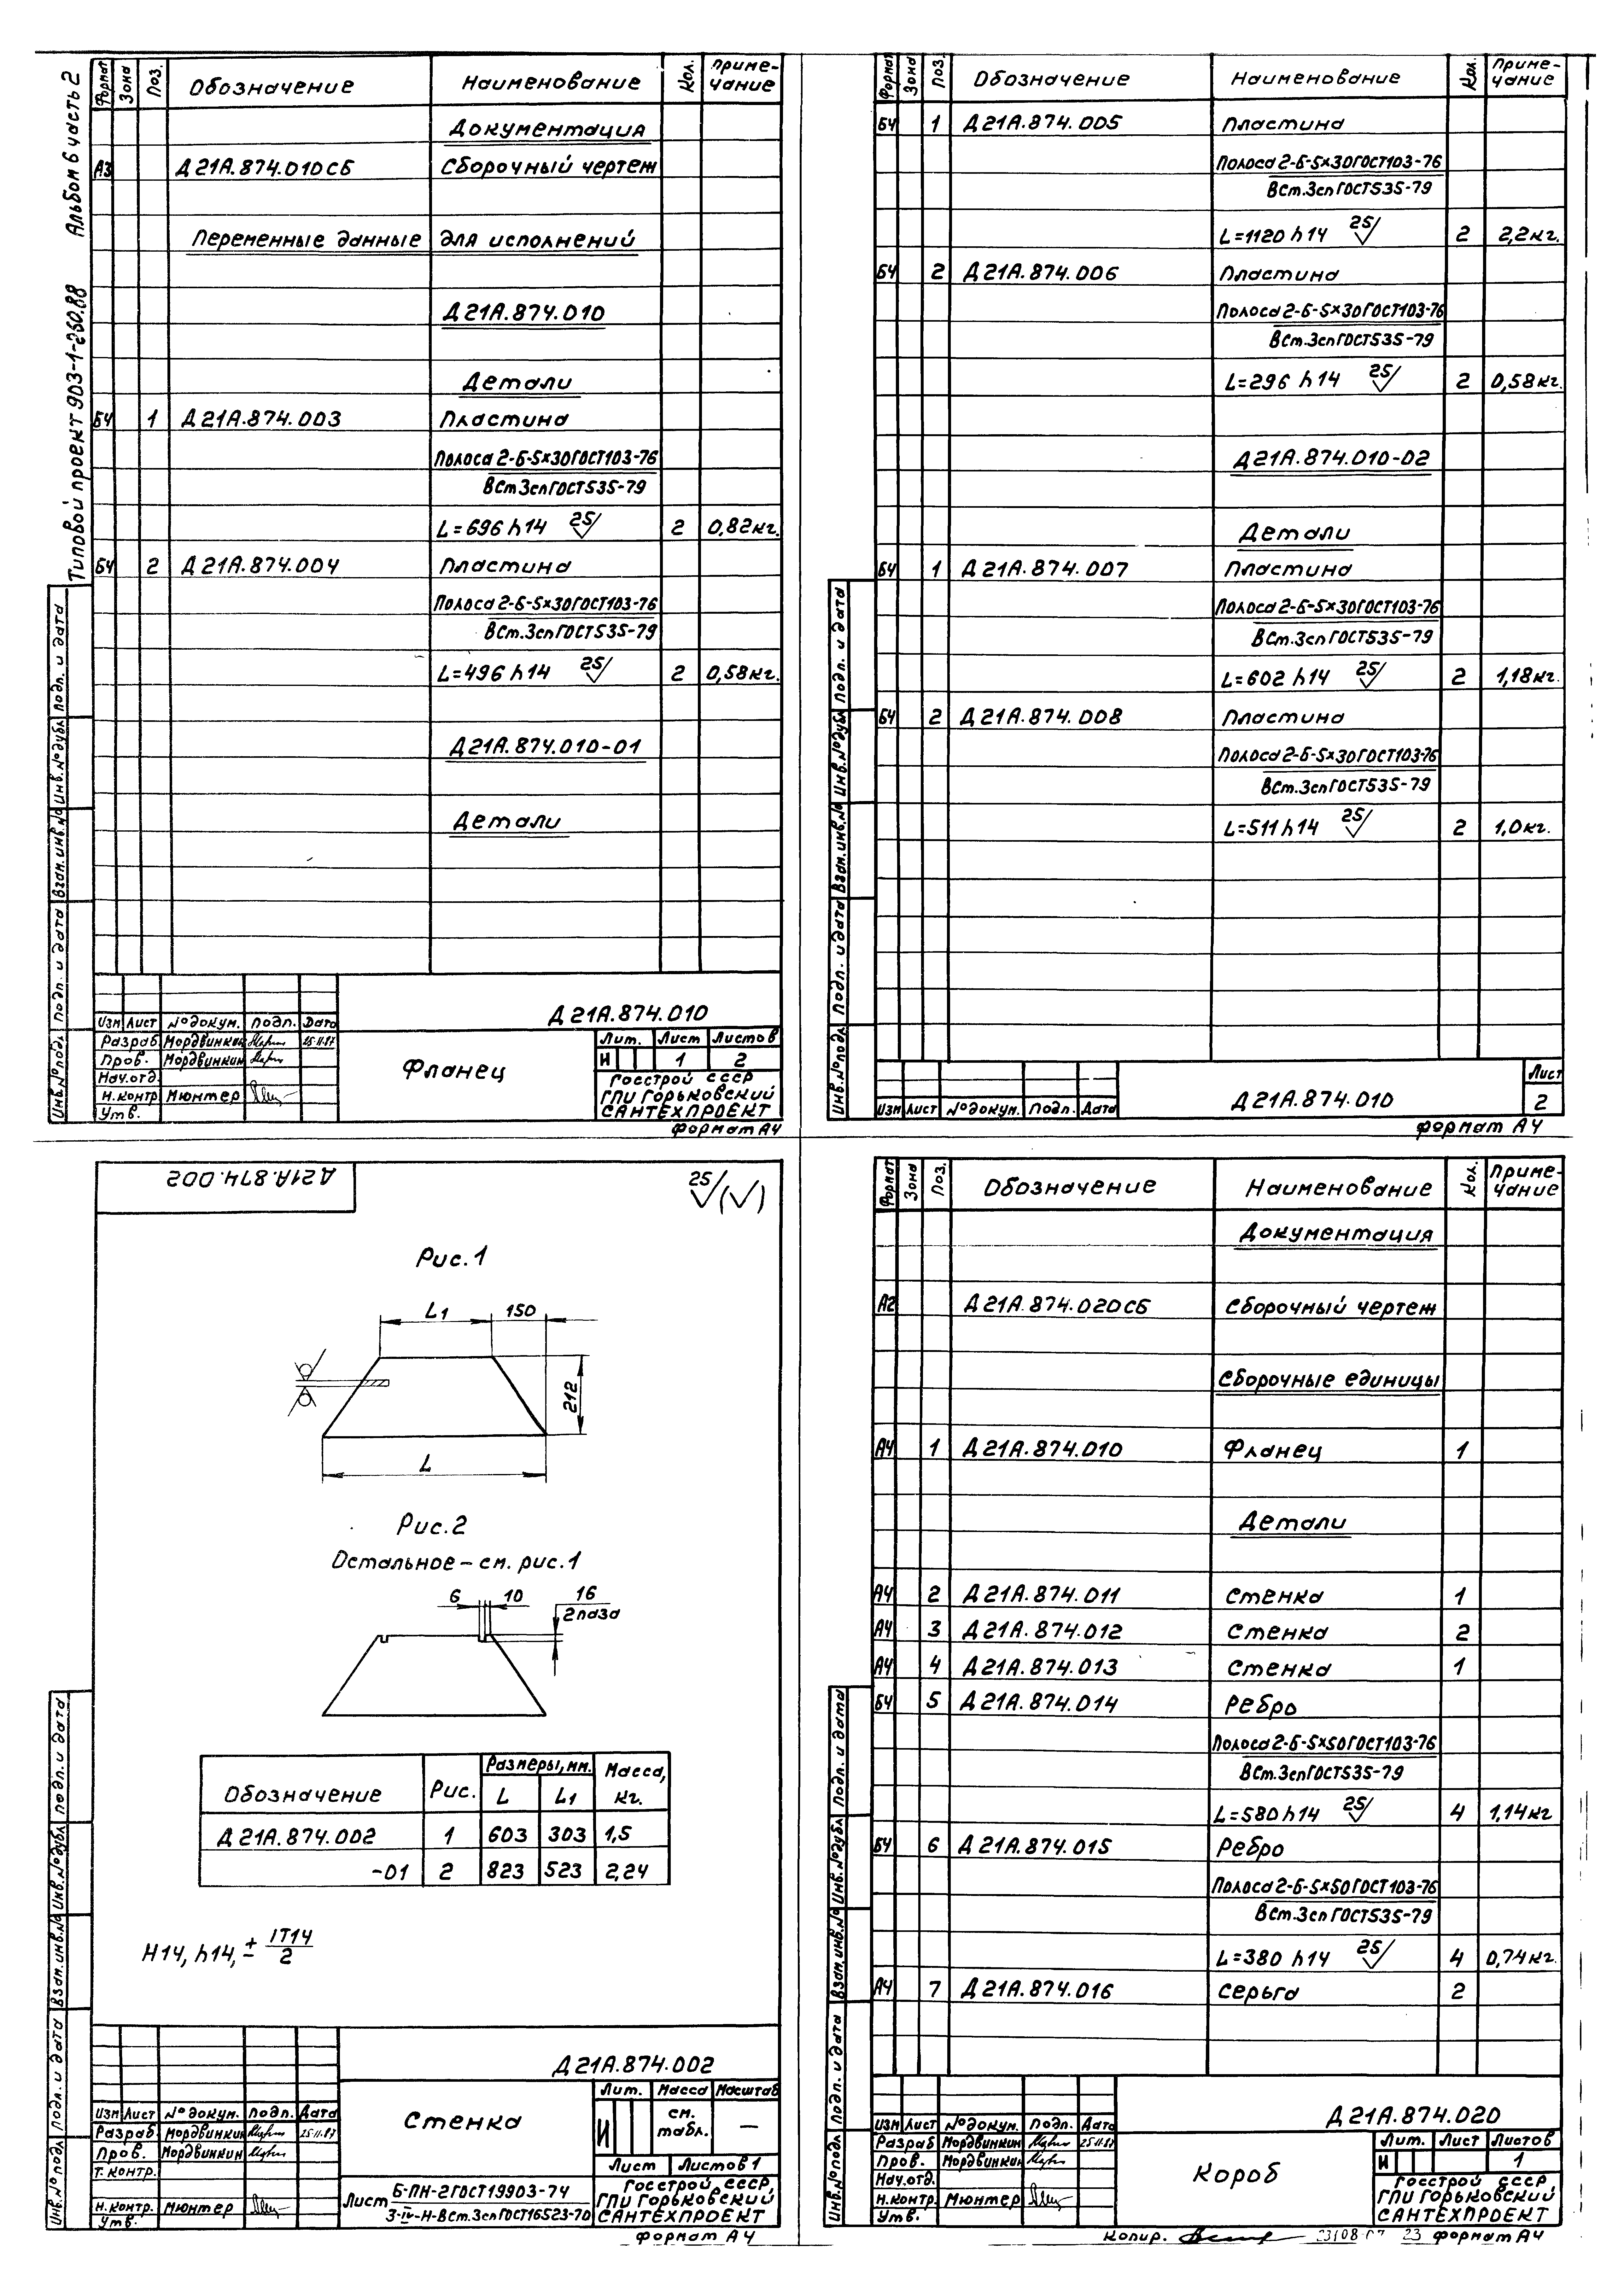 Типовой проект 903-1-260.88 Альбом 6 часть 2
Формат Зона Поз. Обозначение Наименование Кол. Приме-
чание
Документация
А3 Д21А.874.010СБ Сборочный чертеж
Переменные данные для исполнений
Д21А.874.010
Детали
БЧ 1 Д21А.874.003 Пластина
Полоса 2-Б-5×30 ГОСТ103-76
ВСт3сп ГОСТ535-79
L=696 h14 25 2 0,82кг.
БЧ 2 Д21А.874.004 Пластина
Полоса 2-Б-5×30 ГОСТ103-76
ВСт.3сп ГОСТ535-79
L=496 h14 25 2 0,58кг.
Д21А.874.010-01
Детали
Инв.№подл. Подп. и дата Взам.инв.№ Инв.№дубл. Подп. и дата
Д21А.874.010
Изм Лист №докум. Подп. Дата
Разраб Мордвинкин 25.11.87
Пров. Мордвинкин
Нач.отд.
Н.контр Мюнтер
Утв.
Фланец
Лит. Лист Листов
И 1 2
Госстрой СССР
ГПИ Горьковский
САНТЕХПРОЕКТ
Формат А4
Формат Зона Поз. Обозначение Наименование Кол. Приме-
чание
БЧ 1 Д21А.874.005 Пластина
Полоса 2-Б-5×30 ГОСТ103-76
ВСт.3сп ГОСТ535-79
L=1120 h14 25 2 2,2кг.
БЧ 2 Д21А.874.006 Пластина
Полоса 2-Б-5×30 ГОСТ103-76
ВСт.3сп ГОСТ535-79
L=296 h14 25 2 0,58кг.
Д21А.874.010-02
Детали
БЧ 1 Д21А.874.007 Пластина
Полоса 2-Б-5×30 ГОСТ103-76
ВСт.3сп ГОСТ535-79
L=602 h14 25 2 1,18кг.
БЧ 2 Д21А.874.008 Пластина
Полоса 2-Б-5×30 ГОСТ103-76
ВСт.3сп ГОСТ535-79
L=511 h14 25 2 1,0кг.
Инв.№подл. Подп. и дата Взам.инв.№ Инв.№дубл. Подп. и дата
Изм Лист №докум. Подп. Дата
Д21А.874.010
Лист
2
Формат А4
Д21А.874.002
25
Рис.1
L1 150
212
L
Рис.2
Остальное - см. рис.1
6 10 16
2 паза
Обозначение Рис. Размеры, мм. Масса,
кг.
L L1
Д21А.874.002 1 603 303 1,5
-01 2 823 523 2,24
H14, h14, ± IT14
2
Инв.№подл Подп. и дата Взам.инв.№ Инв.№дубл Подп. и дата
Д21А.874.002
Изм Лист №докум. Подп. Дата
Разраб. Мордвинкин 25.11.87
Пров. Мордвинкин
Т.контр.
Н.контр. Мюнтер
Утв.
Стенка
Лит. Масса Масштаб
И см.
табл. —
Лист Листов 1
Лист Б-ПН-2 ГОСТ19903-74
3-IV-Н-ВСт.3сп ГОСТ16523-70
Госстрой СССР,
ГПИ Горьковский
САНТЕХПРОЕКТ
Формат А4
Формат Зона Поз. Обозначение Наименование Кол. Приме-
чание
Документация
А2 Д21А.874.020СБ Сборочный чертеж
Сборочные единицы
А4 1 Д21А.874.010 Фланец 1
Детали
А4 2 Д21А.874.011 Стенка 1
А4 3 Д21А.874.012 Стенка 2
А4 4 Д21А.874.013 Стенка 1
БЧ 5 Д21А.874.014 Ребро
Полоса 2-Б-5×50 ГОСТ103-76
ВСт.3сп ГОСТ535-79
L=580 h14 25 4 1,14кг
БЧ 6 Д21А.874.015 Ребро
Полоса 2-Б-5×50 ГОСТ103-76
ВСт.3сп ГОСТ535-79
L=380 h14 25 4 0,74кг.
А4 7 Д21А.874.016 Серьга 2
Инв.№подл Подп. и дата Взам.инв.№ Инв.№дубл Подп. и дата
Д21А.874.020
Изм Лист №докум. Подп. Дата
Разраб Мордвинкин 25.11.87
Пров. Мордвинкин
Нач.отд.
Н.контр. Мюнтер
Утв.
Короб
Лит. Лист Листов
И 1
Госстрой СССР,
ГПИ Горьковский
САНТЕХПРОЕКТ
Копир. 23 Формат А4